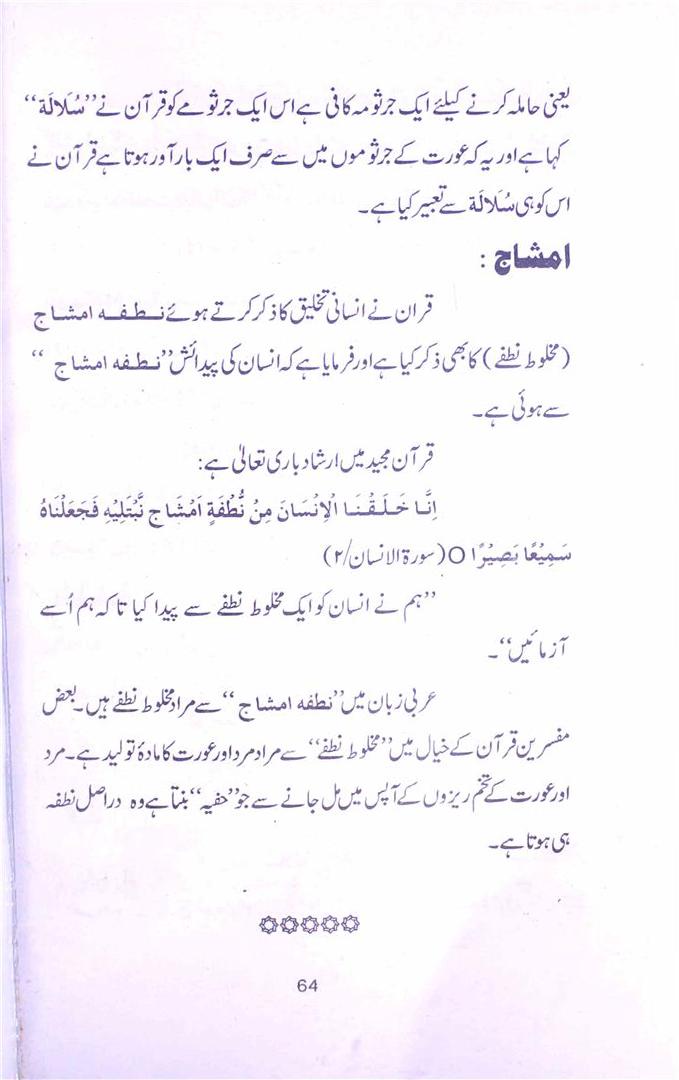 یعنی حاملہ کرنے کیلئے ایک جرثومہ کافی ہے اس ایک جرثومے کو قرآن نے ’’سُلَالَة‘‘
کہا ہے اور یہ کہ عورت کے جرثوموں میں سے صرف ایک بار آور ہوتا ہے قرآن نے
اس کو ہی سُلَالَة سے تعبیر کیا ہے۔
امشاج :
قران نے انسانی تخلیق کا ذکر کرتے ہوئے نطفہ امشاج
(مخلوط نطفے) کا بھی ذکر کیا ہے اور فرمایا ہے کہ انسان کی پیدائش ’’نطفہ امشاج ‘‘
سے ہوئی ہے۔
قرآن مجید میں ارشاد باری تعالیٰ ہے:
اِنَّا خَلَقْنَا الْاِنْسَانَ مِنْ نُّطْفَةٍ اَمْشَاجٍ نَّبْتَلِيْهِ فَجَعَلْنَاهُ
سَمِيْعًا بَصِيْرًا O (سورۃ الانسان/۲)
’’ہم نے انسان کو ایک مخلوط نطفے سے پیدا کیا تا کہ ہم اُسے
آزمائیں‘‘۔
عربی زبان میں ’’نطفہ امشاج ‘‘ سے مراد مخلوط نطفے ہیں۔ بعض
مفسرین قرآن کے خیال میں ’’مخلوط نطفے‘‘ سے مراد مرد اور عورت کا مادۂ تولید ہے۔ مرد
اور عورت کے تخم ریزوں کے آپس میں مل جانے سے جو ’’حفیہ‘‘ بنتا ہے وہ دراصل نطفہ
ہی ہوتا ہے۔
64